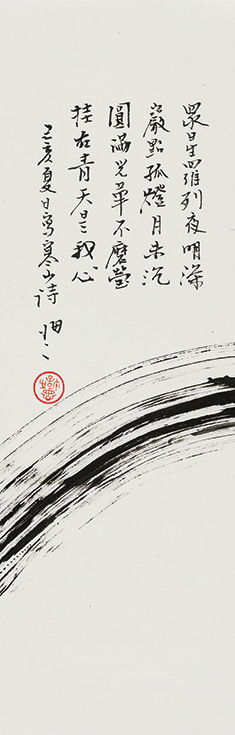 眾星羅列夜明深
巖點孤燈月未沉
圓滿光華不磨瑩
挂在青天是我心
己亥夏日寫寒山詩